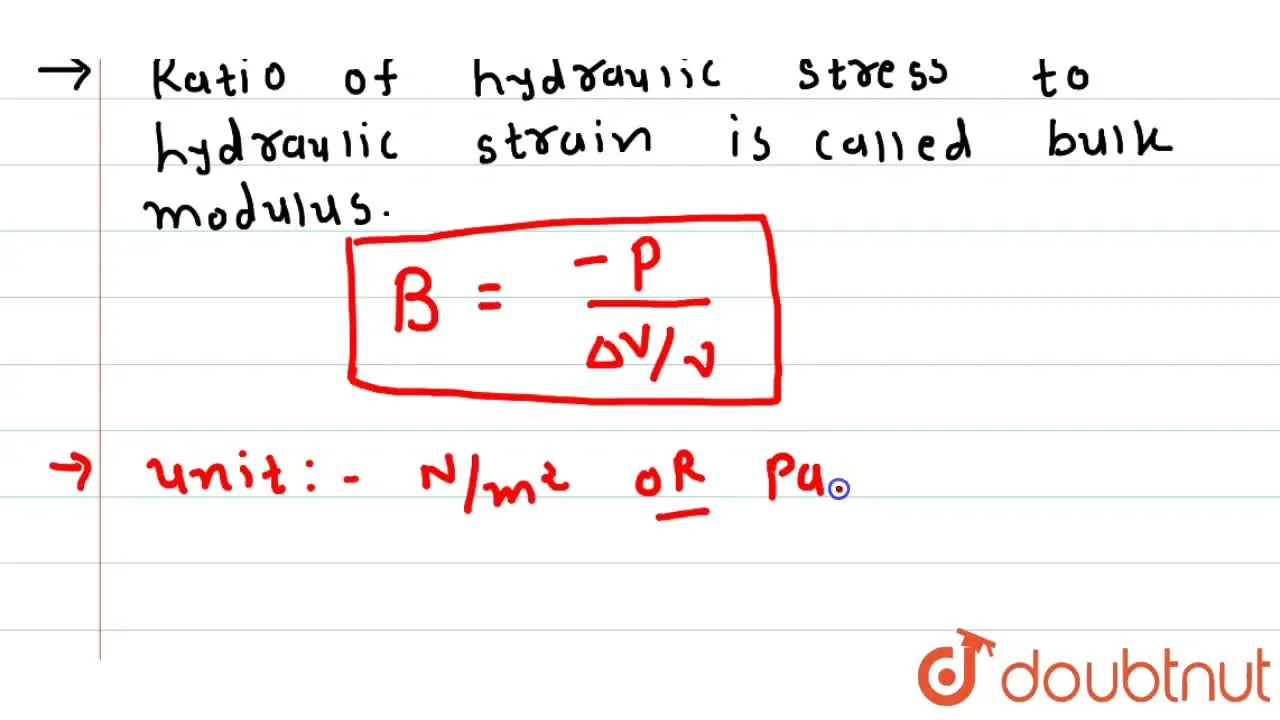 → Ratio of hydraulic stress to
hydraulic strain is called bulk
modulus.
B = -P / ΔV/V
→ unit:- N/m² OR Pa
doubtnut